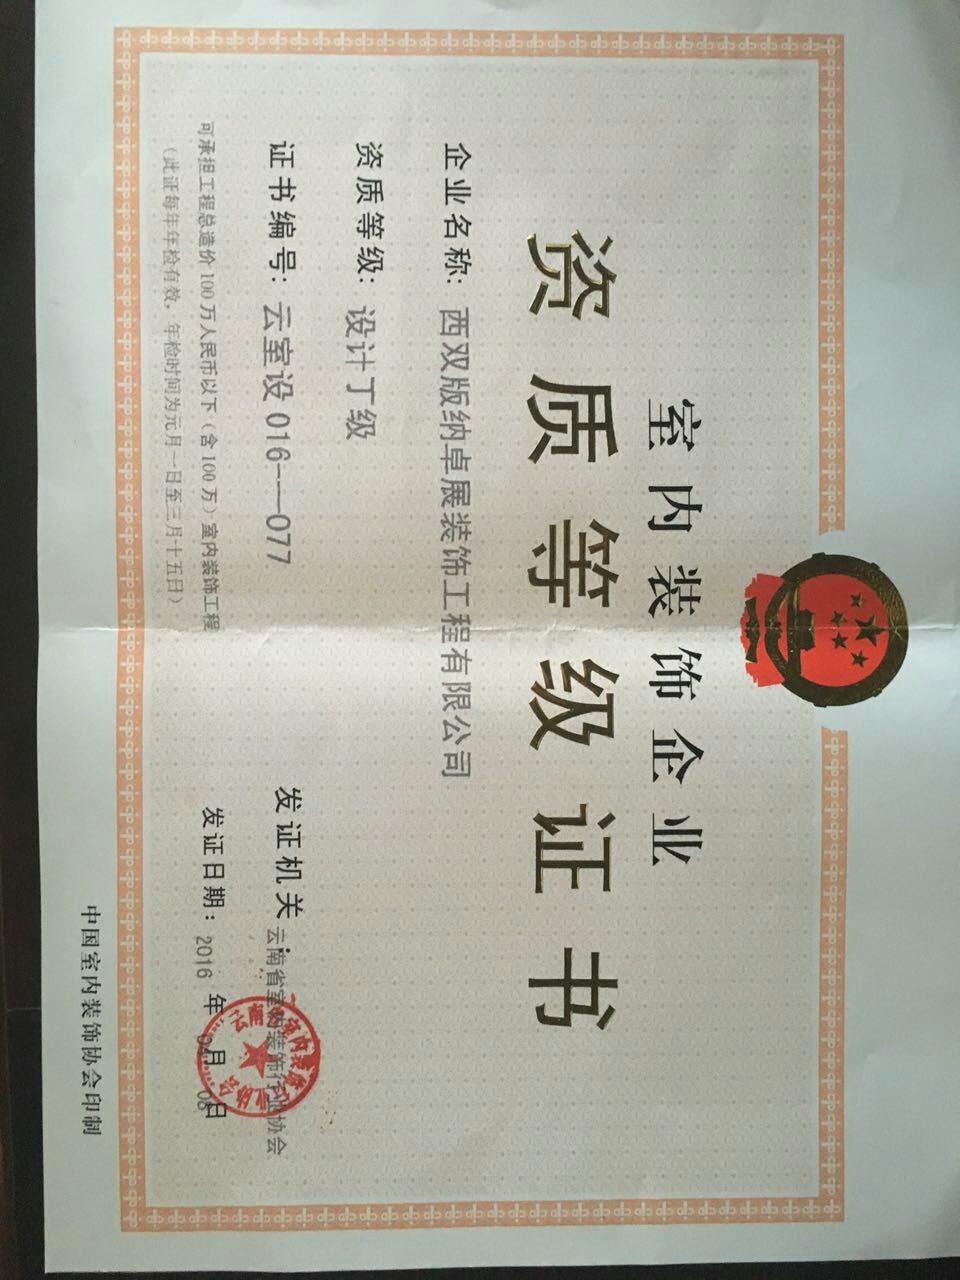 室内装饰企业
资质等级证书
企业名称：西双版纳卓展装饰工程有限公司
资质等级：设计丁级
证书编号：云室设 016—077
可承担工程总造价100万人民币以下（含100万）室内装饰工程
（此证每年年检有效，年检时间为元月一日至三月十五日）
发证机关 云南省室内装饰行业协会
发证日期：2016 年 04 月 08 日
中国室内装饰协会印制